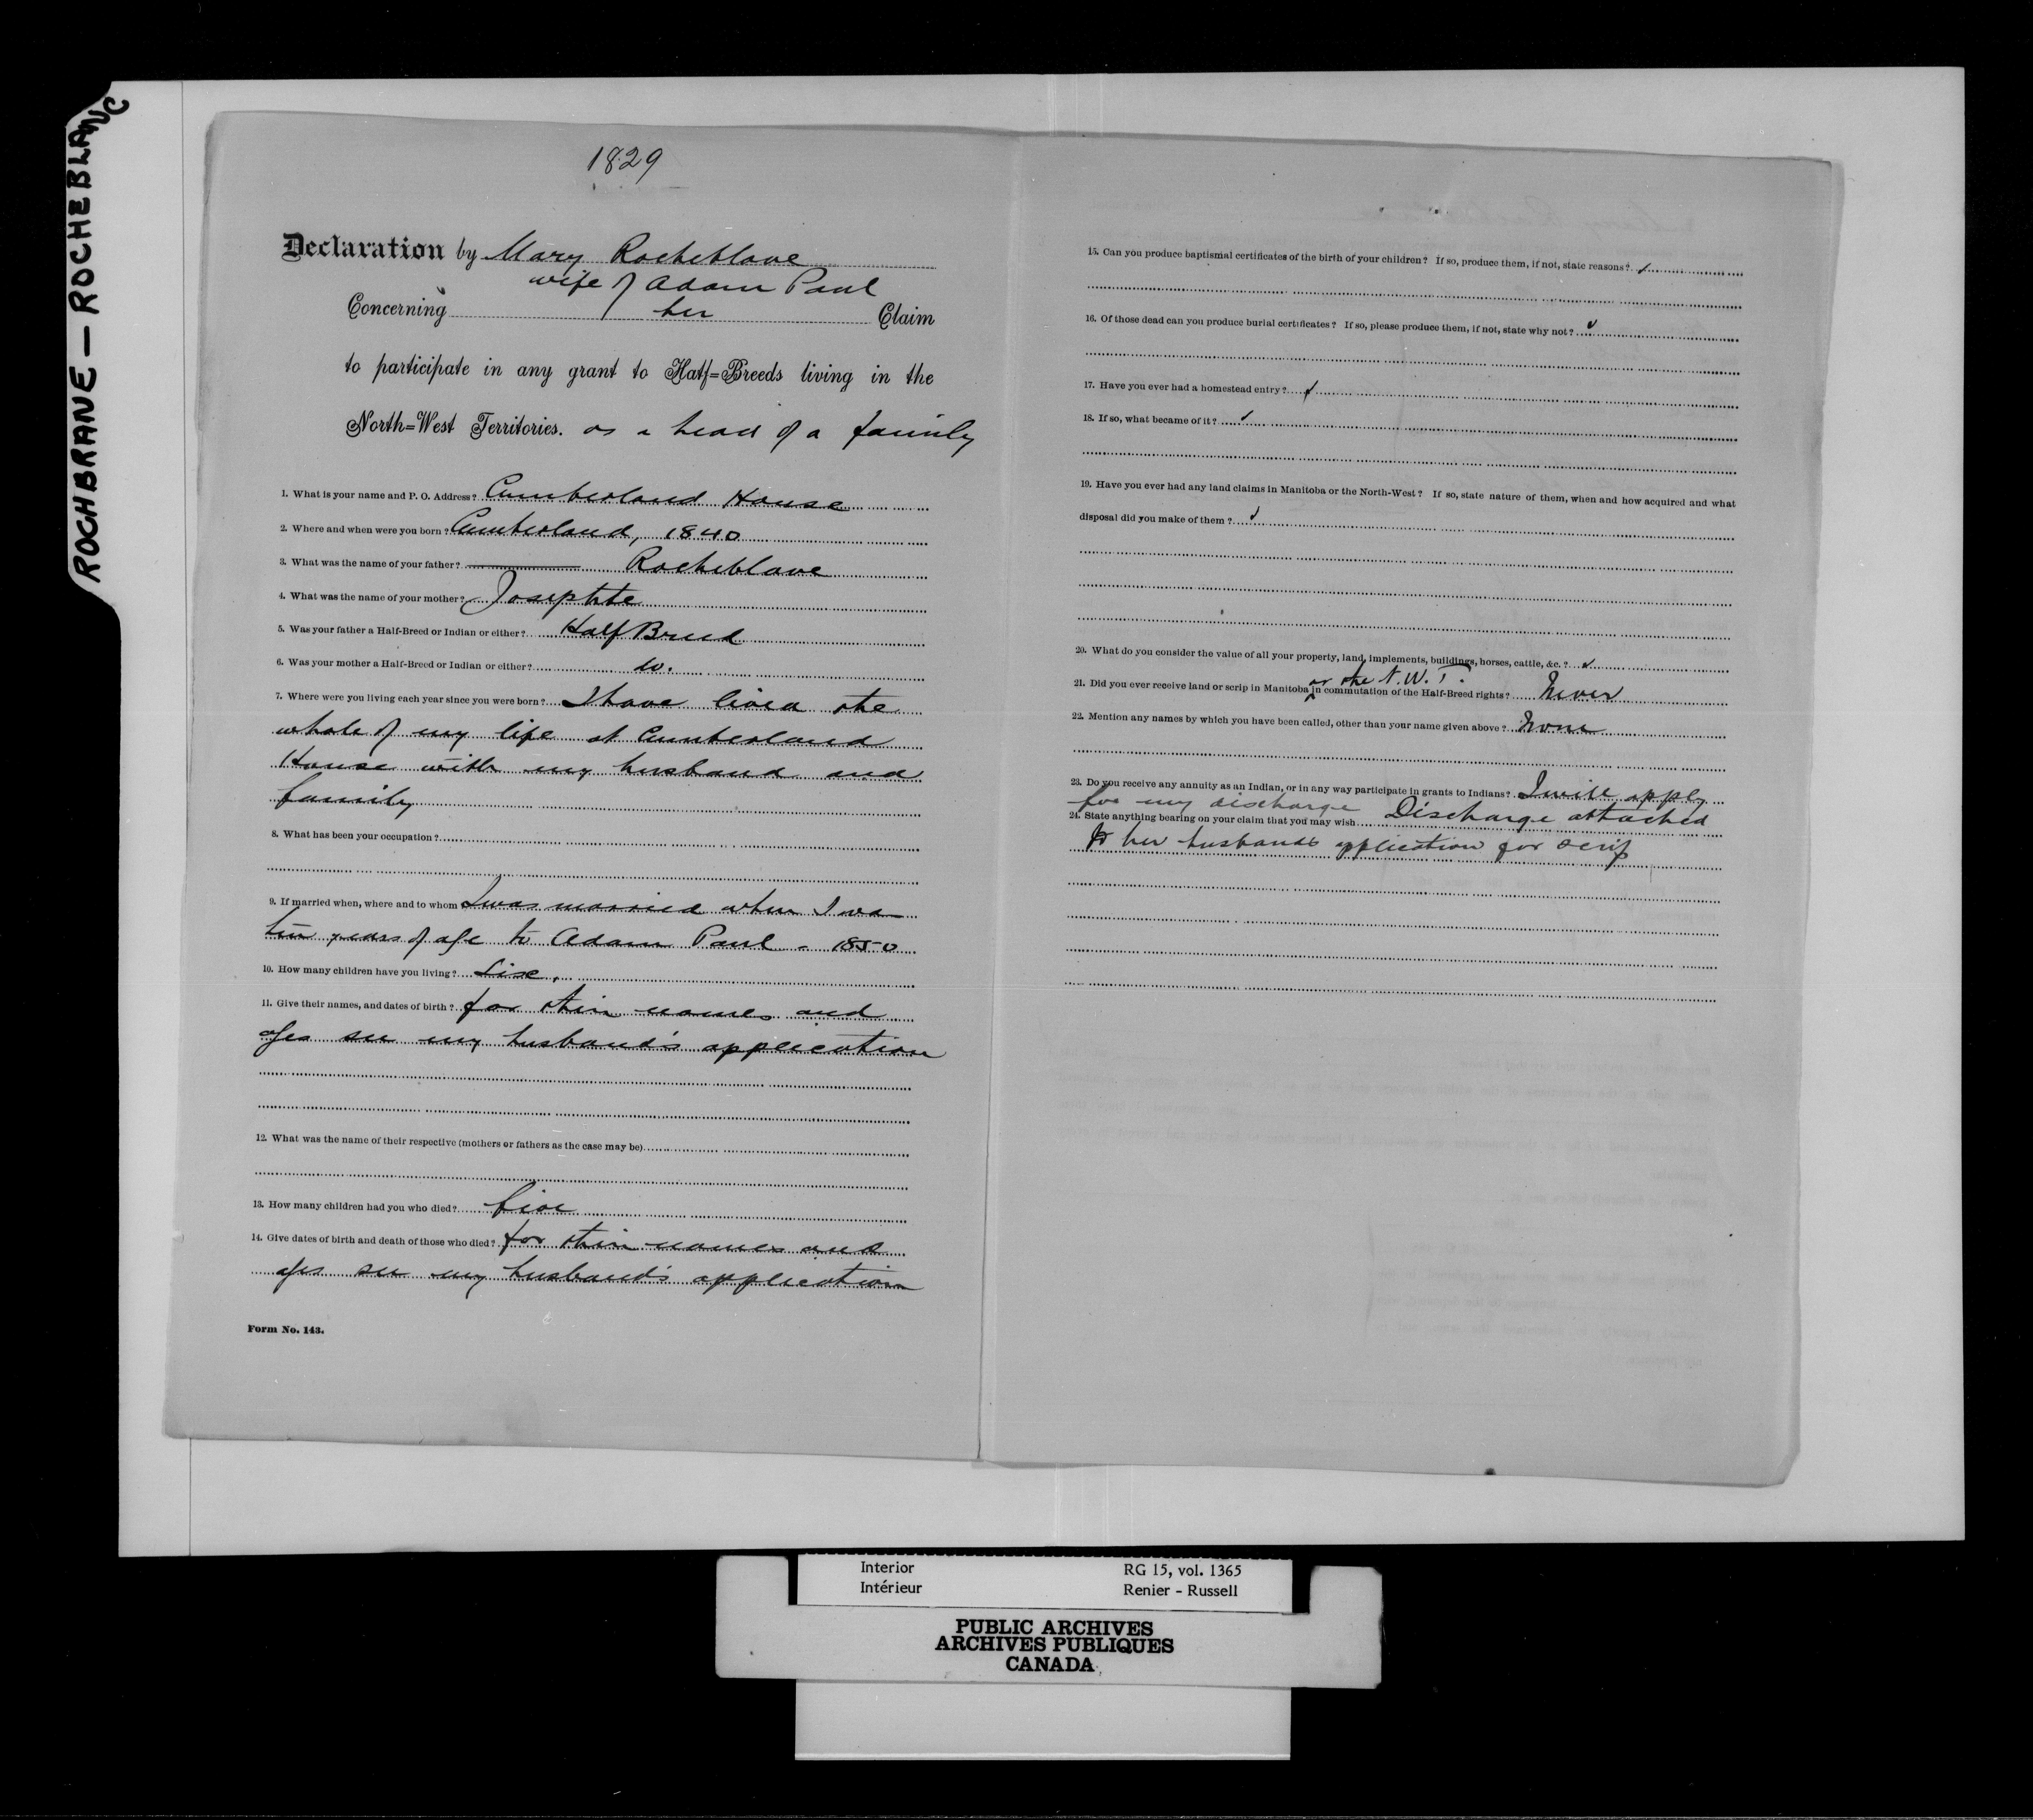 ROCHBRANE — ROCHEBLANC
1829
Declaration by Mary Rocheblave
wife of Adam Paul
Concerning her Claim
to participate in any grant to Half=Breeds living in the
North=West Territories. as a head of a family
1. What is your name and P. O. Address? Cumberland House
2. Where and when were you born? Cumberland, 1840
3. What was the name of your father? Rocheblave
4. What was the name of your mother? Josephte
5. Was your father a Half-Breed or Indian or either? Half Breed
6. Was your mother a Half-Breed or Indian or either? do.
7. Where were you living each year since you were born? I have lived the
whole of my life at Cumberland
House with my husband and
family
8. What has been your occupation?
9. If married when, where and to whom I was married when I was
ten years of age to Adam Paul - 1850
10. How many children have you living? Six.
11. Give their names, and dates of birth? for their names and
ages see my husband's application
12. What was the name of their respective (mothers or fathers as the case may be)
13. How many children had you who died? five
14. Give dates of birth and death of those who died? for their names and
ages see my husband's application
Form No. 143.
15. Can you produce baptismal certificates of the birth of your children? If so, produce them, if not, state reasons? ✓
16. Of those dead can you produce burial certificates? If so, please produce them, if not, state why not? ✓
17. Have you ever had a homestead entry? ✓
18. If so, what became of it? ✓
19. Have you ever had any land claims in Manitoba or the North-West? If so, state nature of them, when and how acquired and what
disposal did you make of them? ✓
20. What do you consider the value of all your property, land, implements, buildings, horses, cattle, &c.? ✓
or the N.W.T.
21. Did you ever receive land or scrip in Manitoba in commutation of the Half-Breed rights? Never
22. Mention any names by which you have been called, other than your name given above? None
23. Do you receive any annuity as an Indian, or in any way participate in grants to Indians? I will apply
for my discharge
24. State anything bearing on your claim that you may wish Discharge attached
to her husbands application for scrip
Interior RG 15, vol. 1365
Intérieur Renier - Russell
PUBLIC ARCHIVES
ARCHIVES PUBLIQUES
CANADA